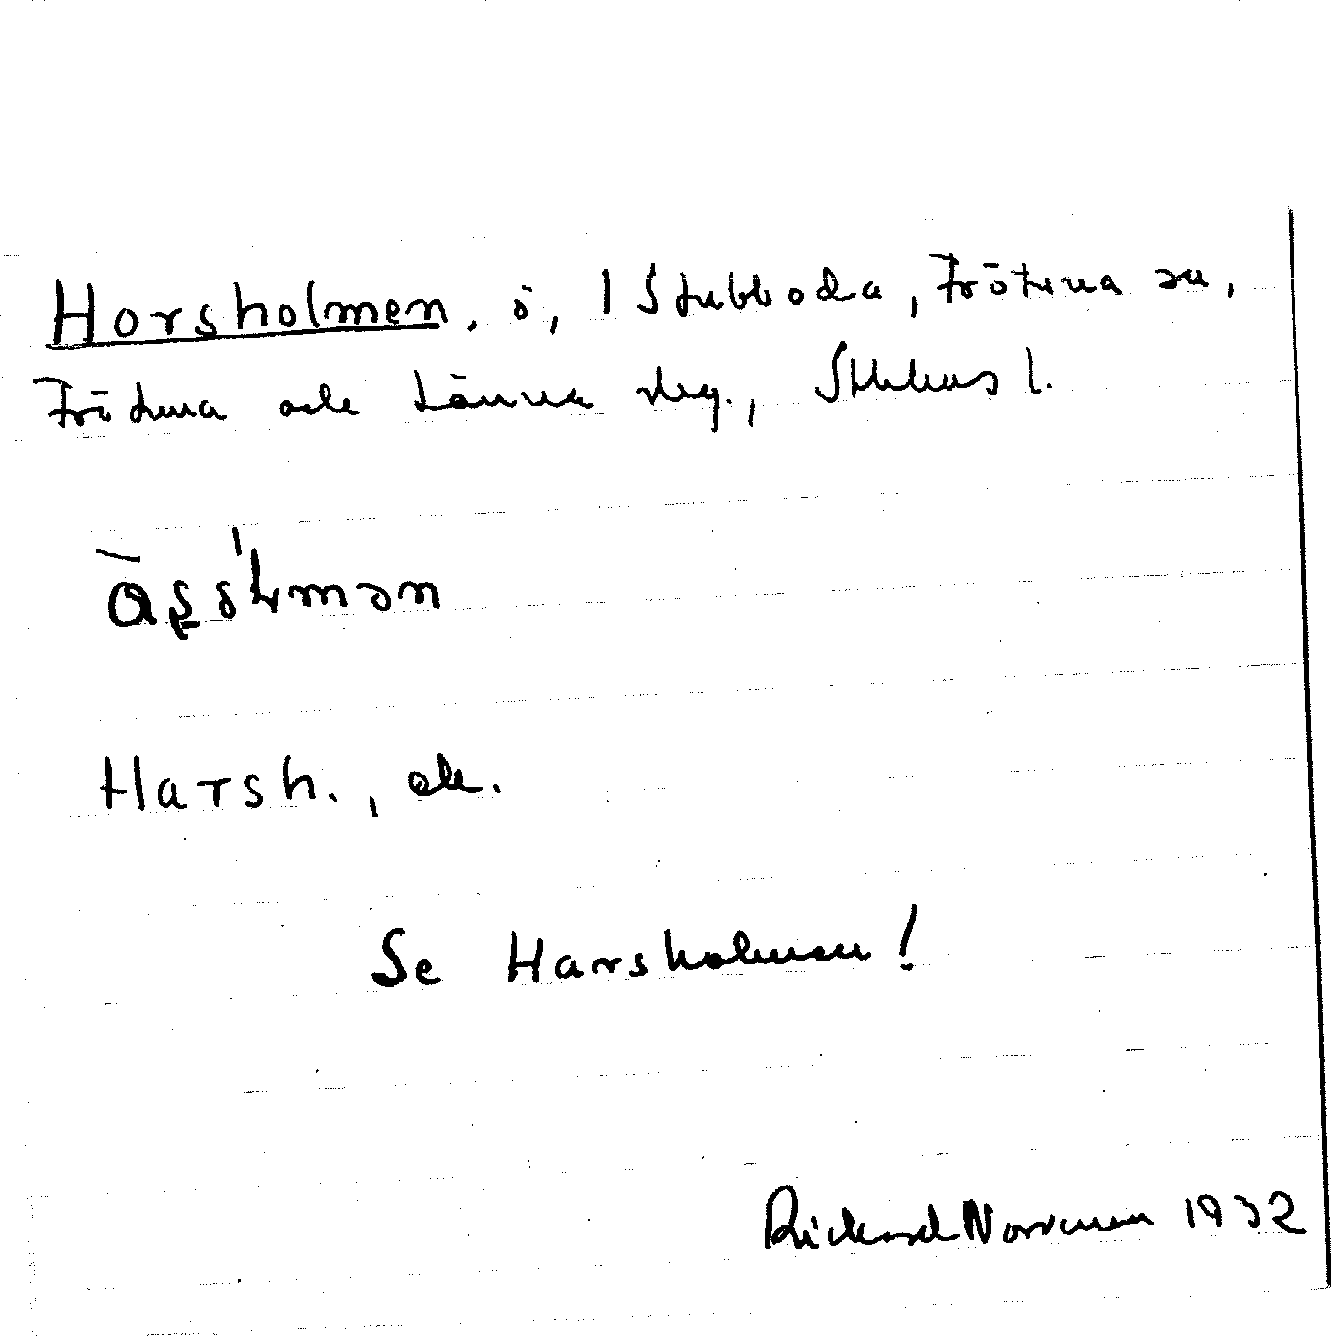 Horsholmen, ö, 1 Stubboda, Frötuna sn,
Frötuna och Länna skg., Sthlms l.
Harsh., ek.
Se Harsholmen!
Rickard Norrman 1932